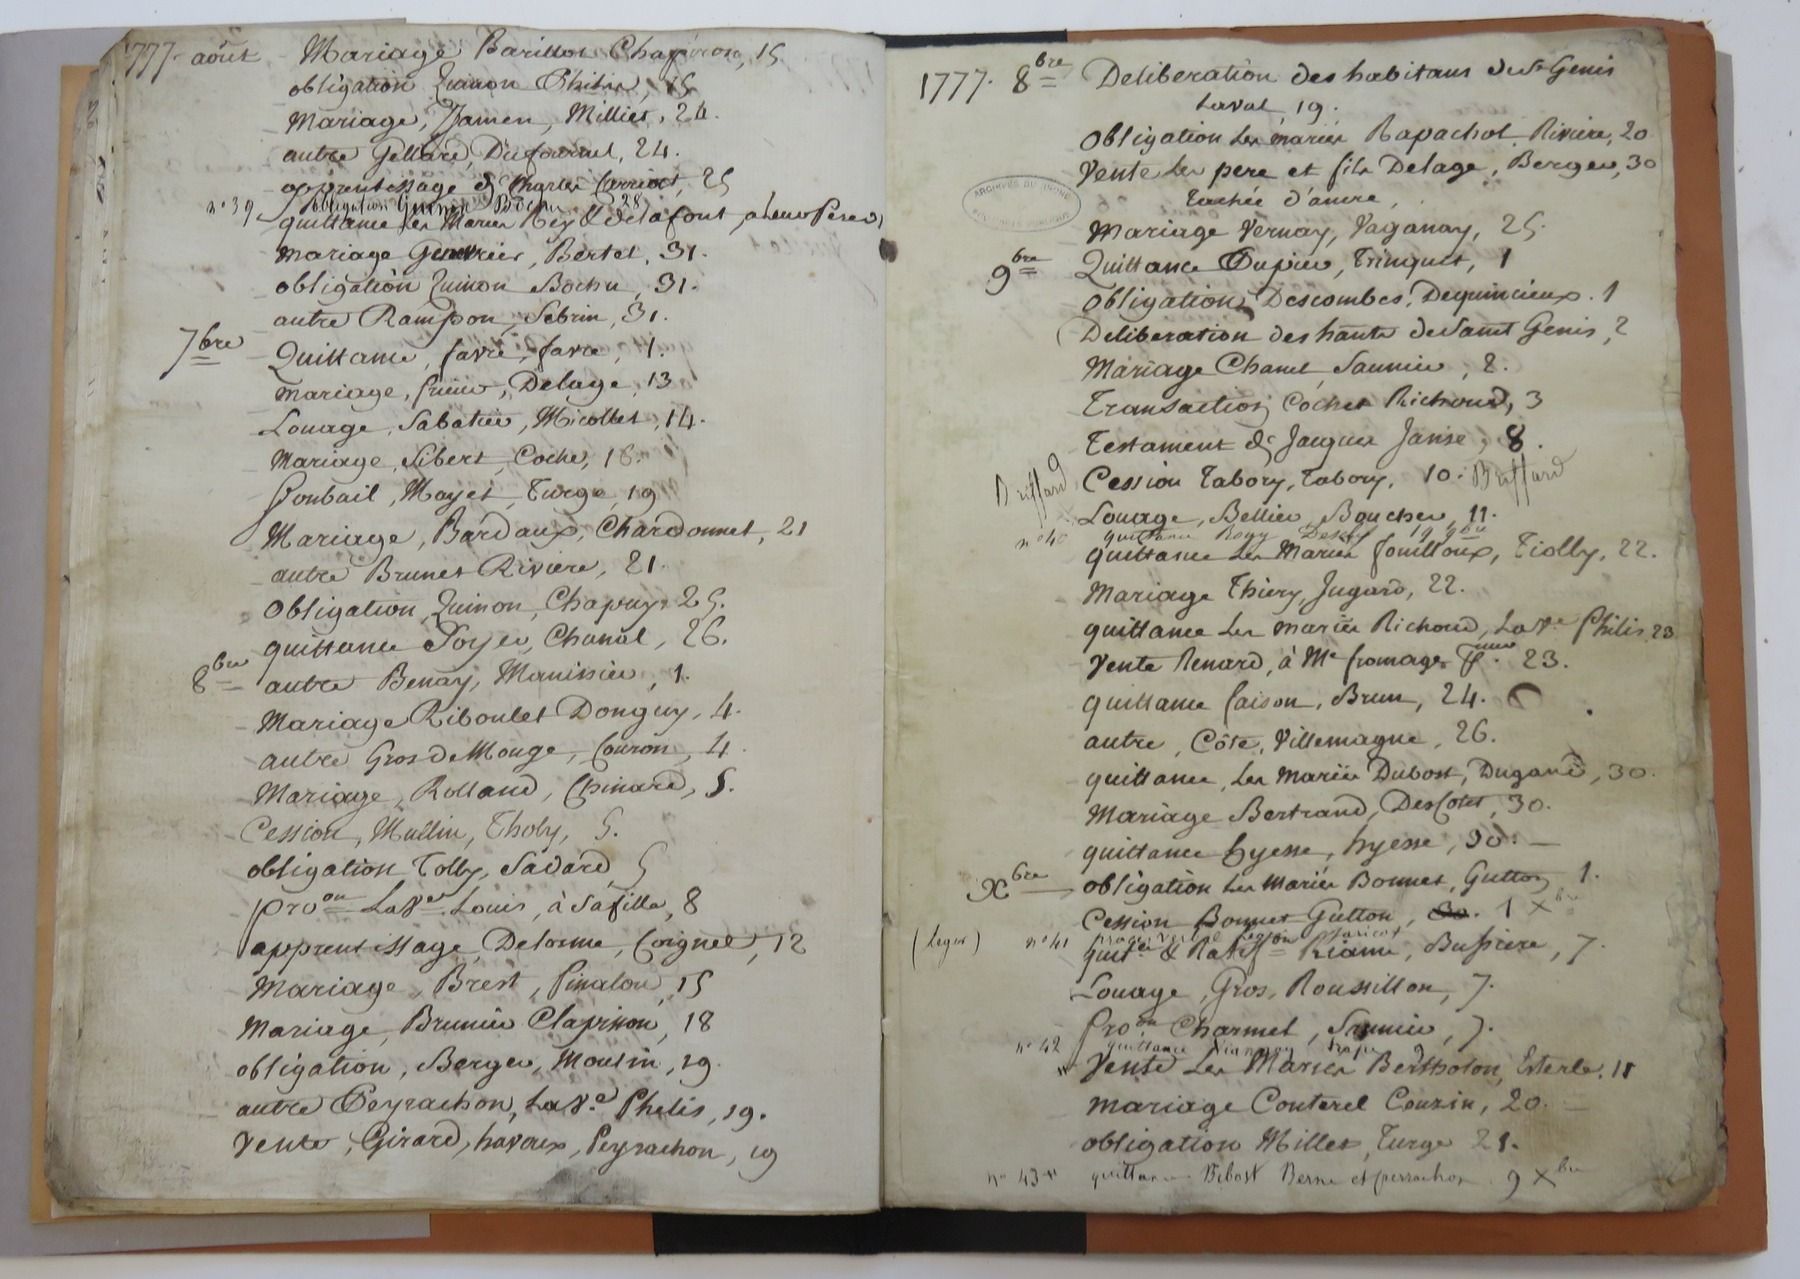 1777. août Mariage Barillot Chaperon, 15
obligation Quinon Philis, 15
Mariage, Jamen, Milliet, 24.
autre Gellard, Dufournel, 24.
apprentissage de Charles Carriot, 25
n° 39 obligation Guinon Bochu 28
quittance les Mariés Rey & delafont, a leurs Peres
Mariage Genevrier, Bertet, 31.
obligation Quinon Bochu, 31.
autre Rampon, Sebrin, 31.
7bre Quittance, favre, favre, 1.
Mariage, Delage, 13
Louage, Sabatier, Micollet, 14.
Mariage, Sibert, Coche, 18.
Soubail, Mayet, Turge, 19
Mariage, Bardaux, Chardonnet, 21
autre Brunet Riviere, 21.
Obligation, Quinon, Chapuy, 25.
quittance Poyer, Chanal, 26.
8bre autre Benay, Manissier, 1.
Mariage Riboulet Donguy, 4.
autre Gros deMouge, Couron, 4.
Mariage, Rolland, Chinard, 5.
Cession, Mullin, Thoby, 5.
obligation Tolly, Savard, 5
proon La Ve Louis, à Sa fille, 8
apprentissage, Delorme, Coignet, 12
Mariage, Brest, Pinalon, 15
Mariage, Brunier Clapisson, 18
obligation, Berger, Moulin, 19.
autre Peyrachon, La Ve Philis, 19.
Vente, Girard, havoux, Peyrachon, 19
1777. 8bre Deliberation des habitans de St Genis
Laval, 19.
Obligation les mariés Rapachot, Riviere, 20
Vente les pere et fils Delage, Berger, 30
Tachée d'ancre,
ARCHIVES DU RHONE
Mariage Vernay, Vaganay, 25.
9bre Quittance Dupin, Trinquet, 1
Obligation, Descombes, Dequincieux. 1
Deliberation des hants de Saint Genis, 2
Mariage Chanel, Saunier, 2.
Transaction, Cochet Richoud, 3
Testament de Jacques Janise, 8.
Briffard Cession Tabory, Tabory, 10. Briffard
Louage, Bellier, Boucher, 11.
n° 40 quittance 19 9bre
quittance les Mariés fouilloux, Tiolly, 22.
Mariage Thiery, Jugard, 22.
quittance les mariés Richoud, La Ve Philis, 23
Vente Renard, à Me fromage 23.
quittance Caison, Brun, 24.
autre, Côte, Villemagne, 26.
quittance, les Mariés Dubost, Dugand, 30.
Mariage Bertrand, Descotes, 30.
quittance hyesse, hyesse, 30.
Xbre obligation les Mariés Bonnet, Gutton, 1.
Cession Bonnet Gutton, 30. 1 Xbre
(Leger) n° 41 procès verbal
quitce & Ratifon Riame, Bussiere, 7.
Louage, Gros, Roussillon, 7.
Proon Charmet, Saunier, 7.
n° 42 quittance
Vente les Mariés Bertholon, Esterle, 11
Mariage Conterel Couzin, 20.
obligation Millet, Turge 21.
n° 43 quittance Bibost Berne et perrachon. 9 Xbre